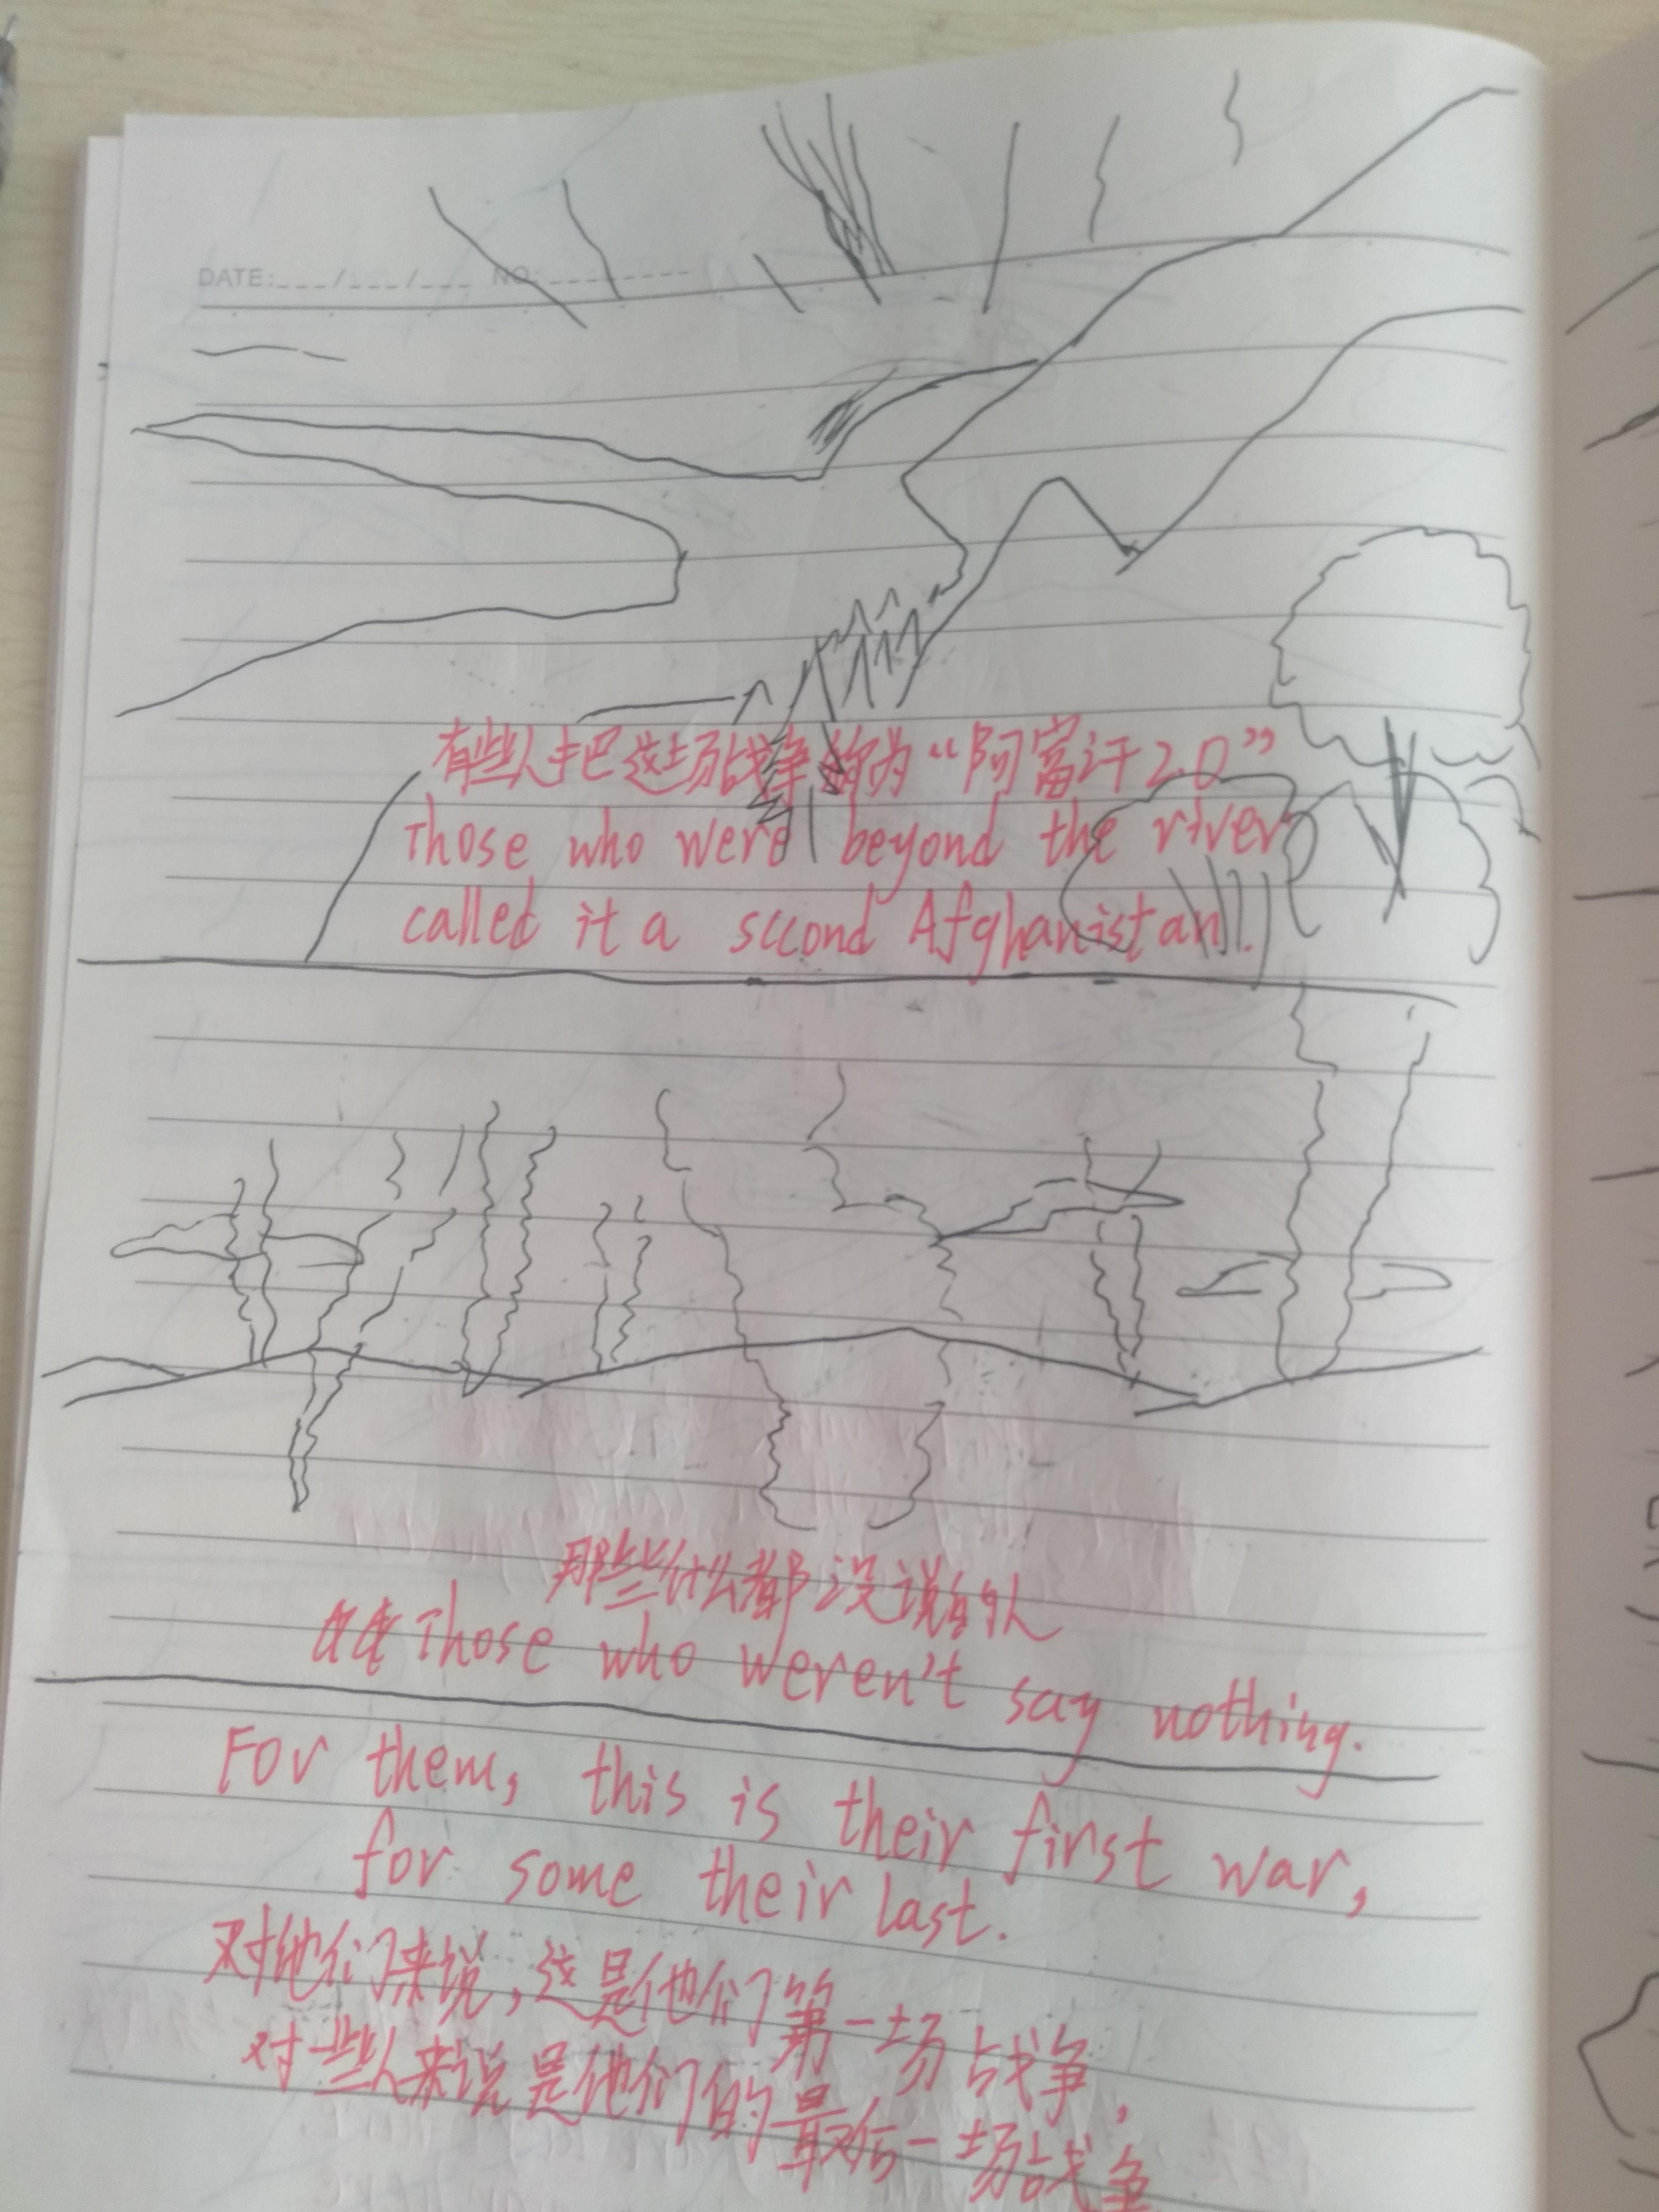 DATE:___/___/___ NO:_________
有些人把这场战争称为“阿富汗2.0”
Those who were beyond the river
called it a second Afghanistan.
那些什么都没说的人
Those who weren't say nothing.
For them, this is their first war,
for some their last.
对他们来说,这是他们第一场战争,
对一些人来说是他们的最后一场战争